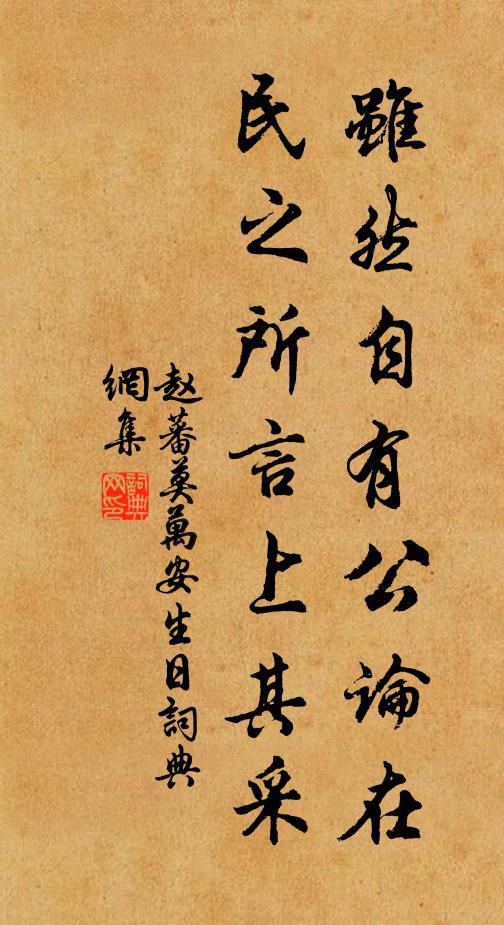 雖然自有公論在
民之所言上其采
赵蕃莫萬安生日詞典
網集
詞典
网印